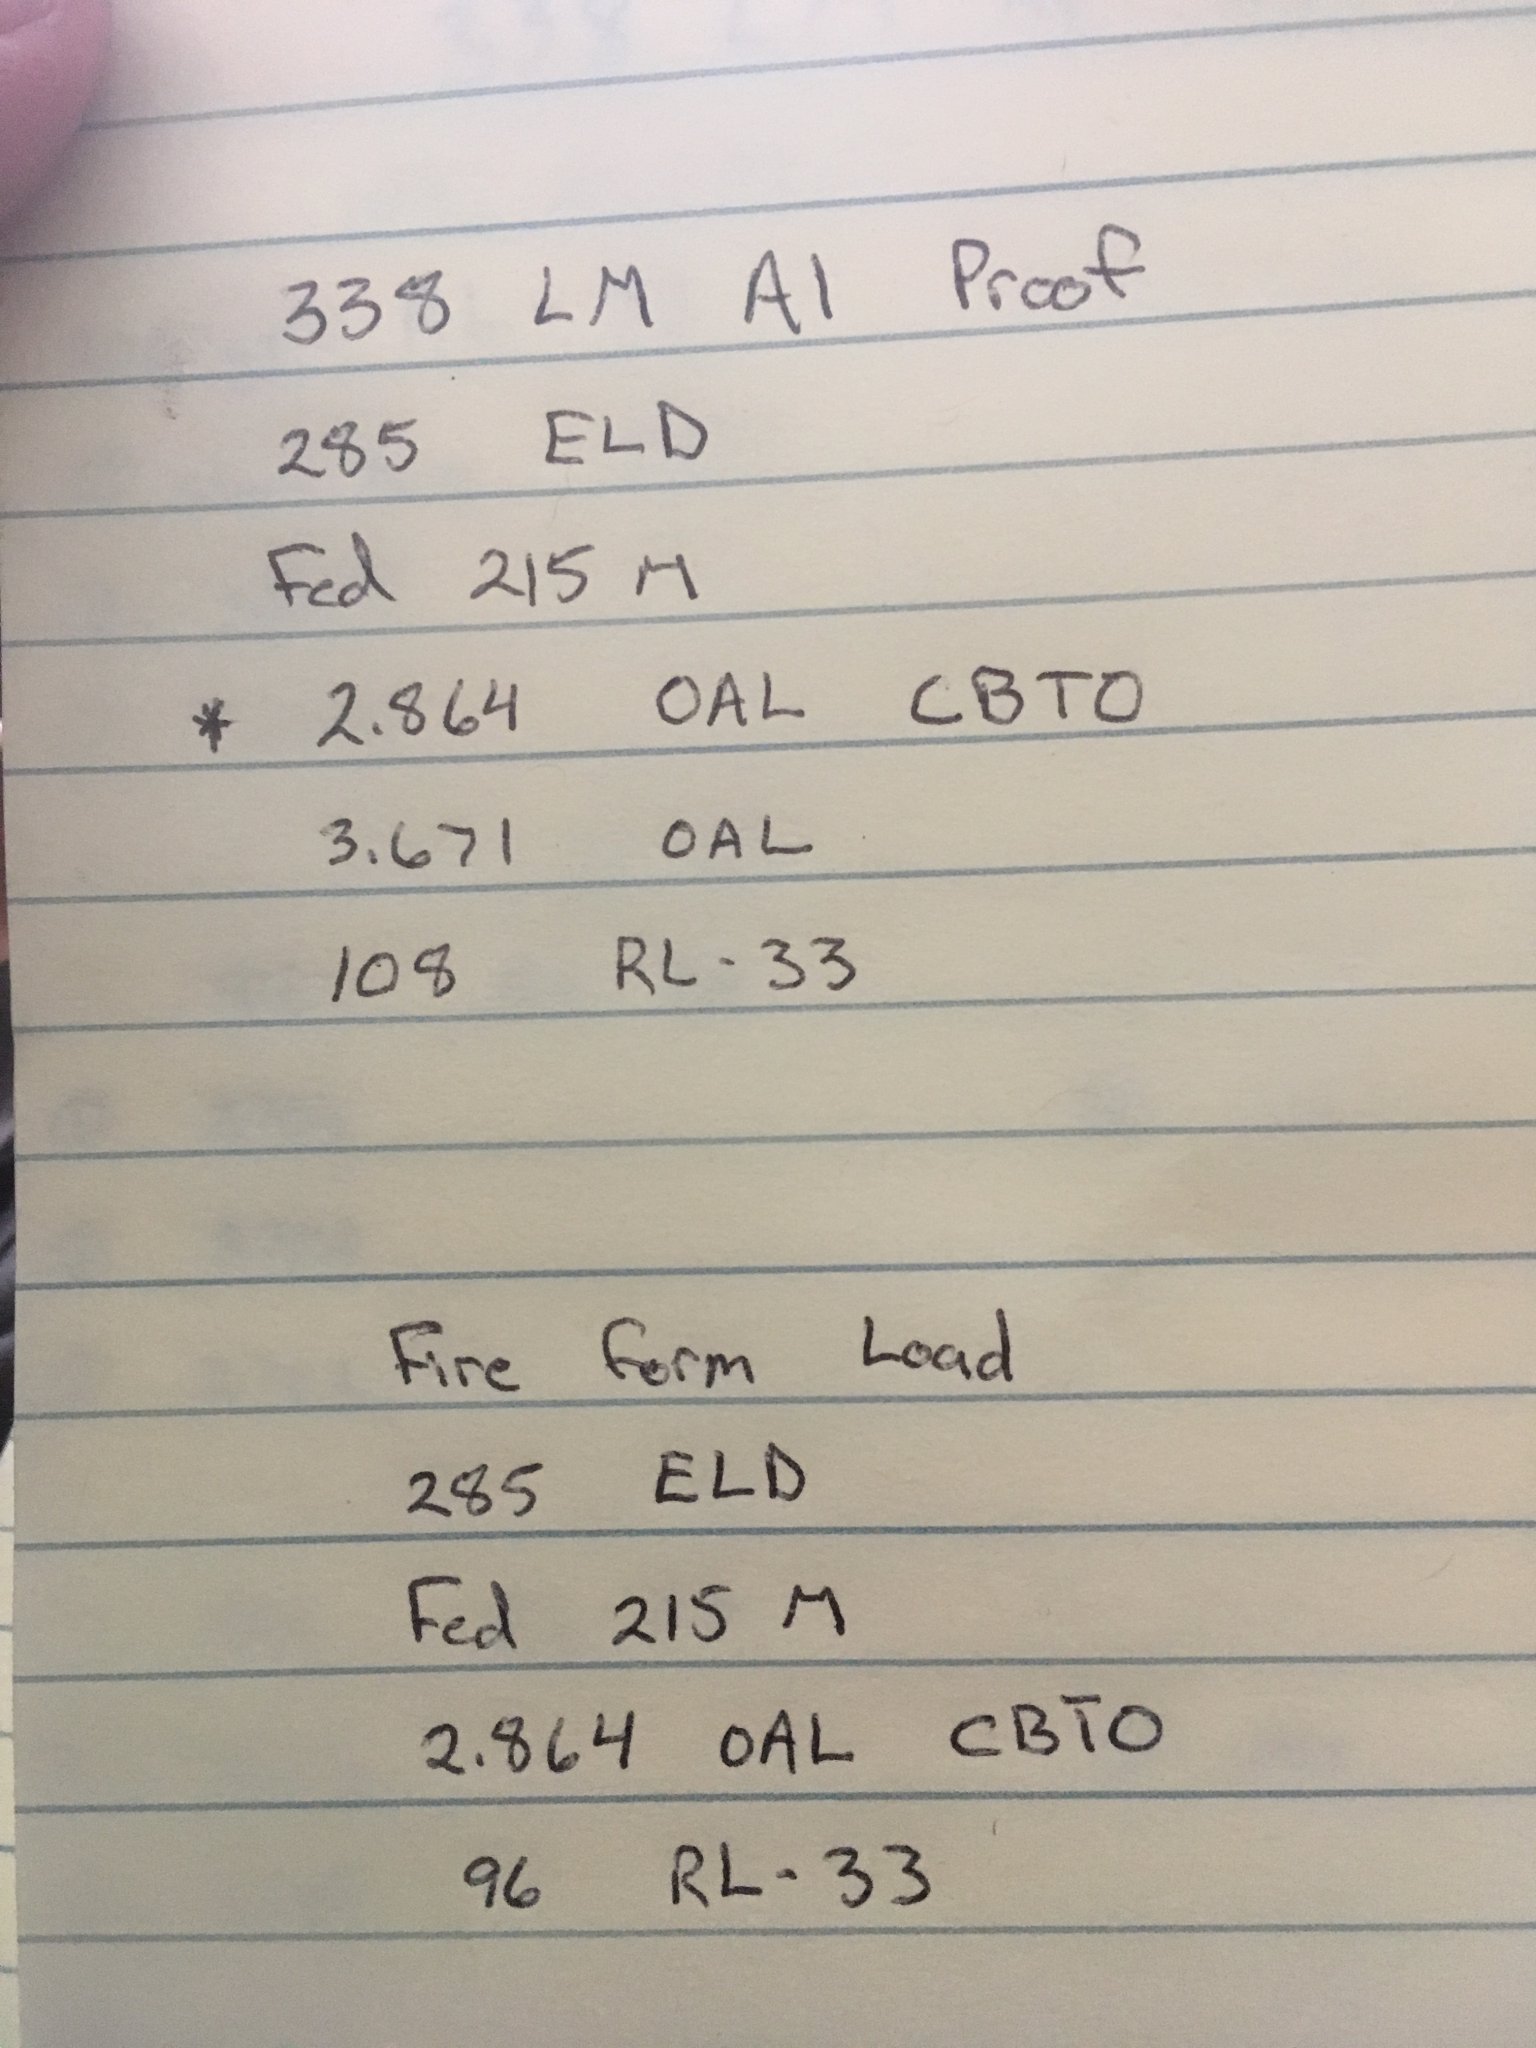 338 LM AI Proof
285 ELD
Fed 215 M
* 2.864 OAL CBTO
3.671 OAL
108 RL-33
Fire Form Load
285 ELD
Fed 215 M
2.864 OAL CBTO
96 RL-33